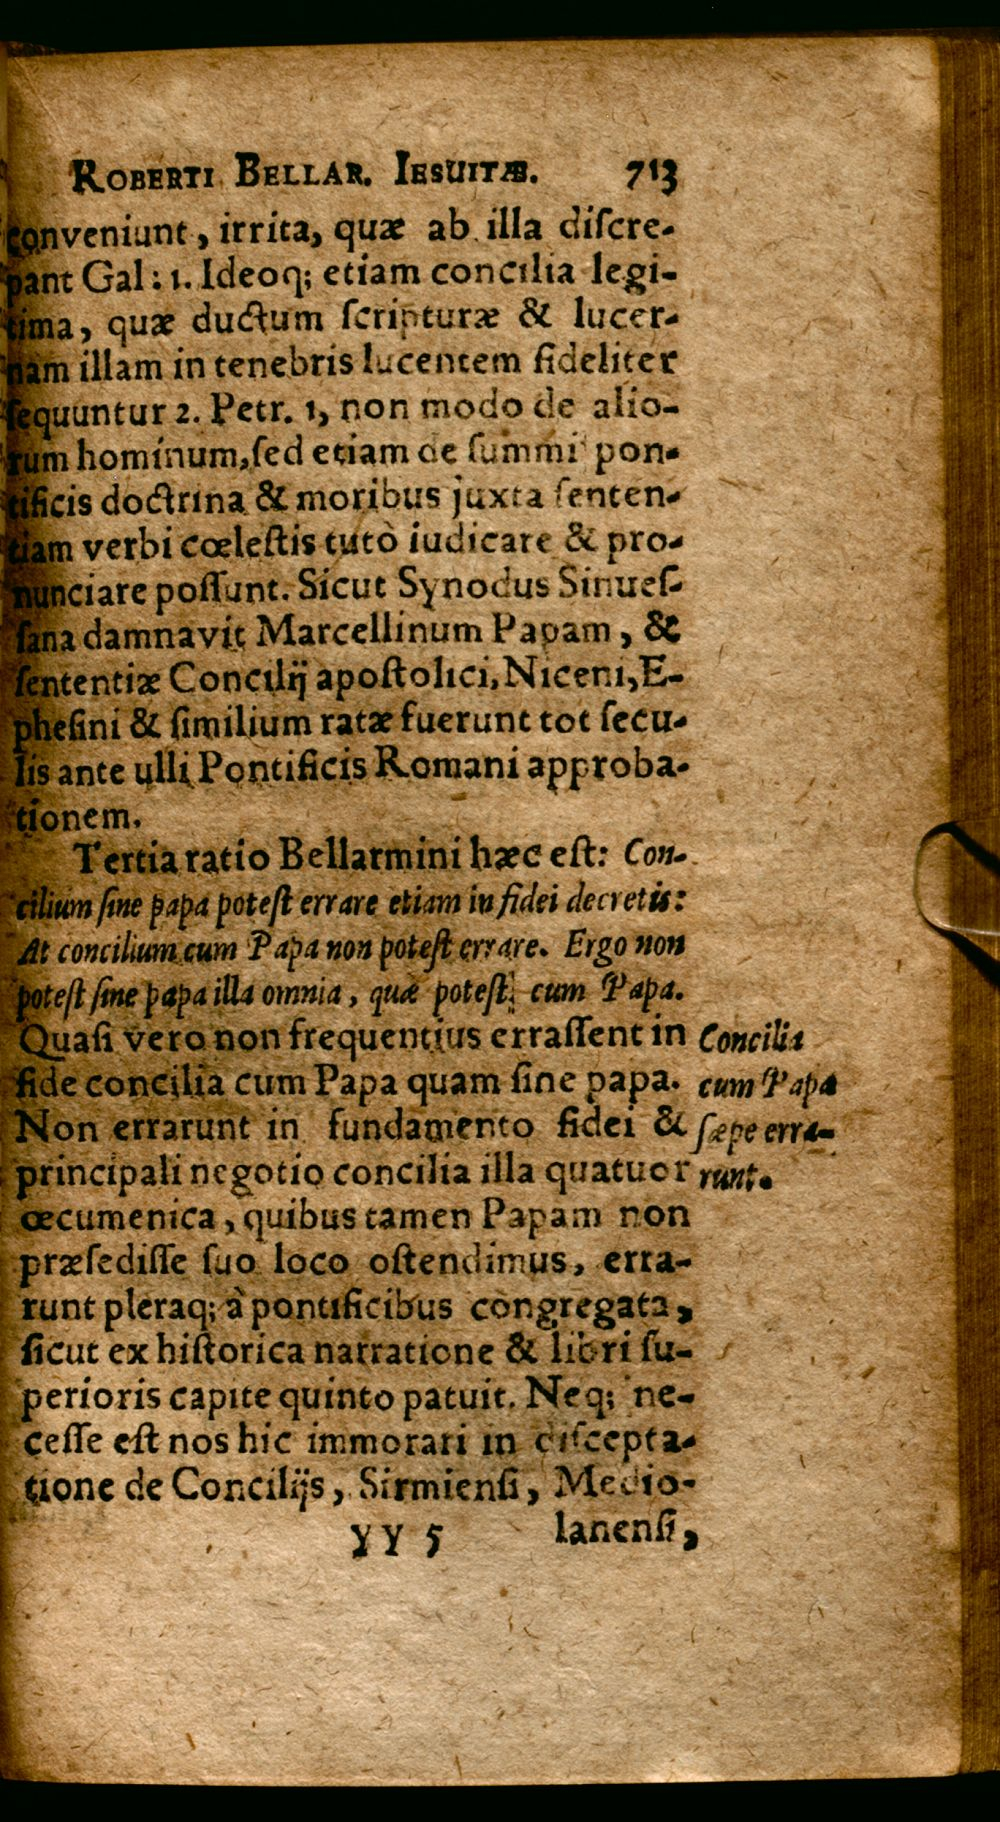 ROBERTI BELLAR. IESUITÆ. 713
conveniunt, irrita, quæ ab illa diſcre-
pant Gal: 1. Ideoq; etiam concilia legi-
tima, quæ ductum ſcripturæ & lucer-
nam illam in tenebris lucentem fideliter
ſequuntur 2. Petr. 1, non modo de alio-
rum hominum, ſed etiam de ſummi pon-
tificis doctrina & moribus juxta ſenten-
tiam verbi cœleſtis tutò iudicare & pro-
nunciare poſſunt. Sicut Synodus Sinueſ-
ſana damnavit Marcellinum Papam, &
ſententiæ Concilij apoſtolici, Niceni, E-
pheſini & ſimilium ratæ fuerunt tot ſecu-
lis ante ulli Pontificis Romani approba-
tionem.
Tertia ratio Bellarmini hæc eſt: Con-
cilium ſine papa poteſt errare etiam in fidei decretis:
At concilium cum Papa non poteſt errare. Ergo non
poteſt ſine papa illa omnia, quæ poteſt cum Papa.
Quaſi vero non frequentius erraſſent in
fide concilia cum Papa quam ſine papa.
Non errarunt in fundamento fidei &
principali negotio concilia illa quatuor
œcumenica, quibus tamen Papam non
præſediſſe ſuo loco oſtendimus, erra-
runt pleraq; à pontificibus congregata,
ſicut ex hiſtorica narratione & libri ſu-
perioris capite quinto patuit. Neq; ne-
ceſſe eſt nos hic immorari in diſcepta-
tione de Concilijs, Sirmienſi, Medio-
YY 5 lanenſi,
Concilia
cum Papa
ſæpe erra-
runt.